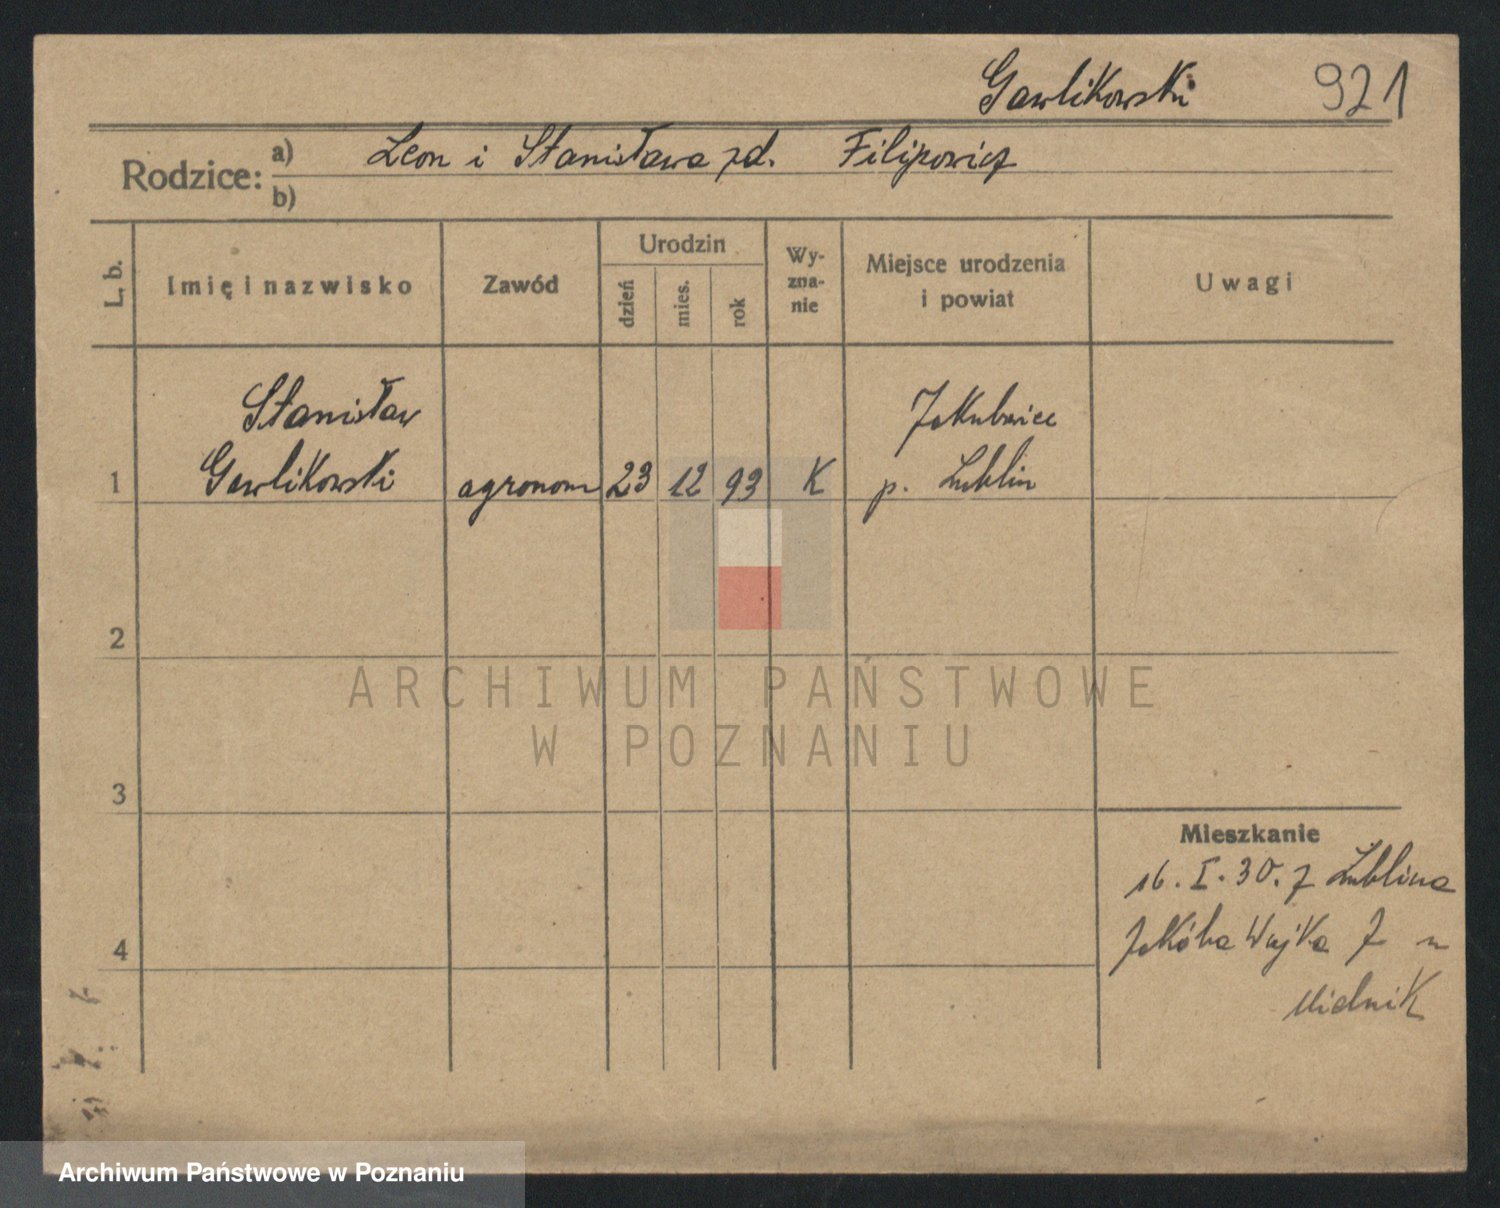 Gawlikowski 921
Rodzice: a) Leon i Stanisława zd. Filipowicz
b)
L. b. Imię i nazwisko Zawód Urodzin dzień mies. rok Wy-zna-nie Miejsce urodzenia i powiat Uwagi
Stanisław Jakubowice
1 Gawlikowski agronom 23 12 93 K p. Lublin
2
ARCHIWUM PAŃSTWOWE
W POZNANIU
3
Mieszkanie
16. I. 30. z Lublina
Jakóba Wujka 7 u
4
Mielnik
Archiwum Państwowe w Poznaniu